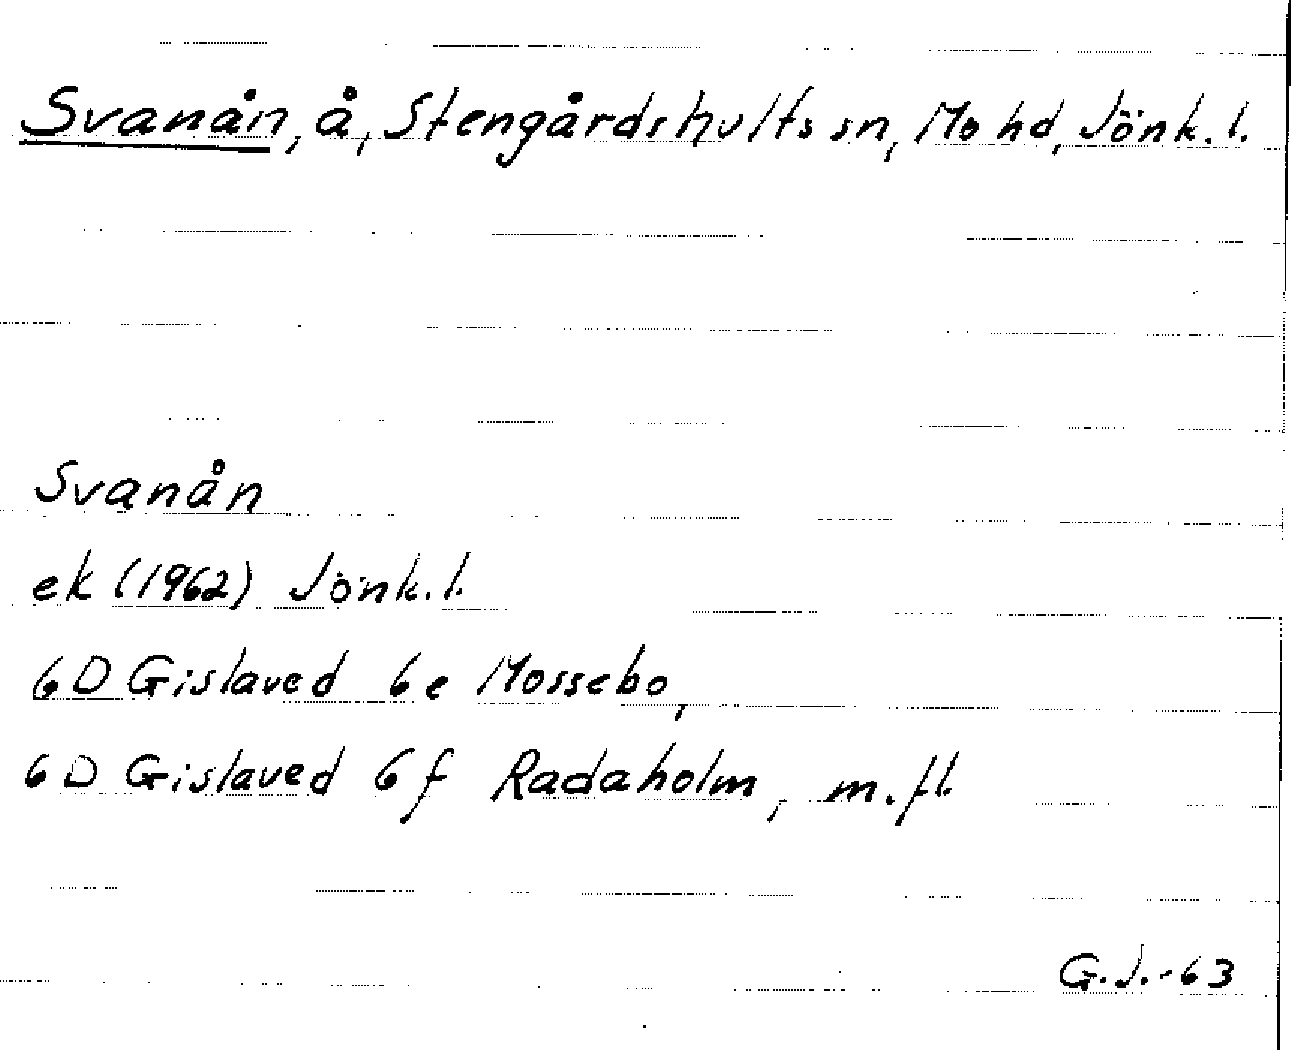 Svanån, å, Stengårdshults sn, Mo hd, Jönk. l.
Svanån
ek (1962) Jönk. l.
6D Gislaved 6e Mossebo,
6D Gislaved 6f Radaholm, m.fl.
G.J.-63